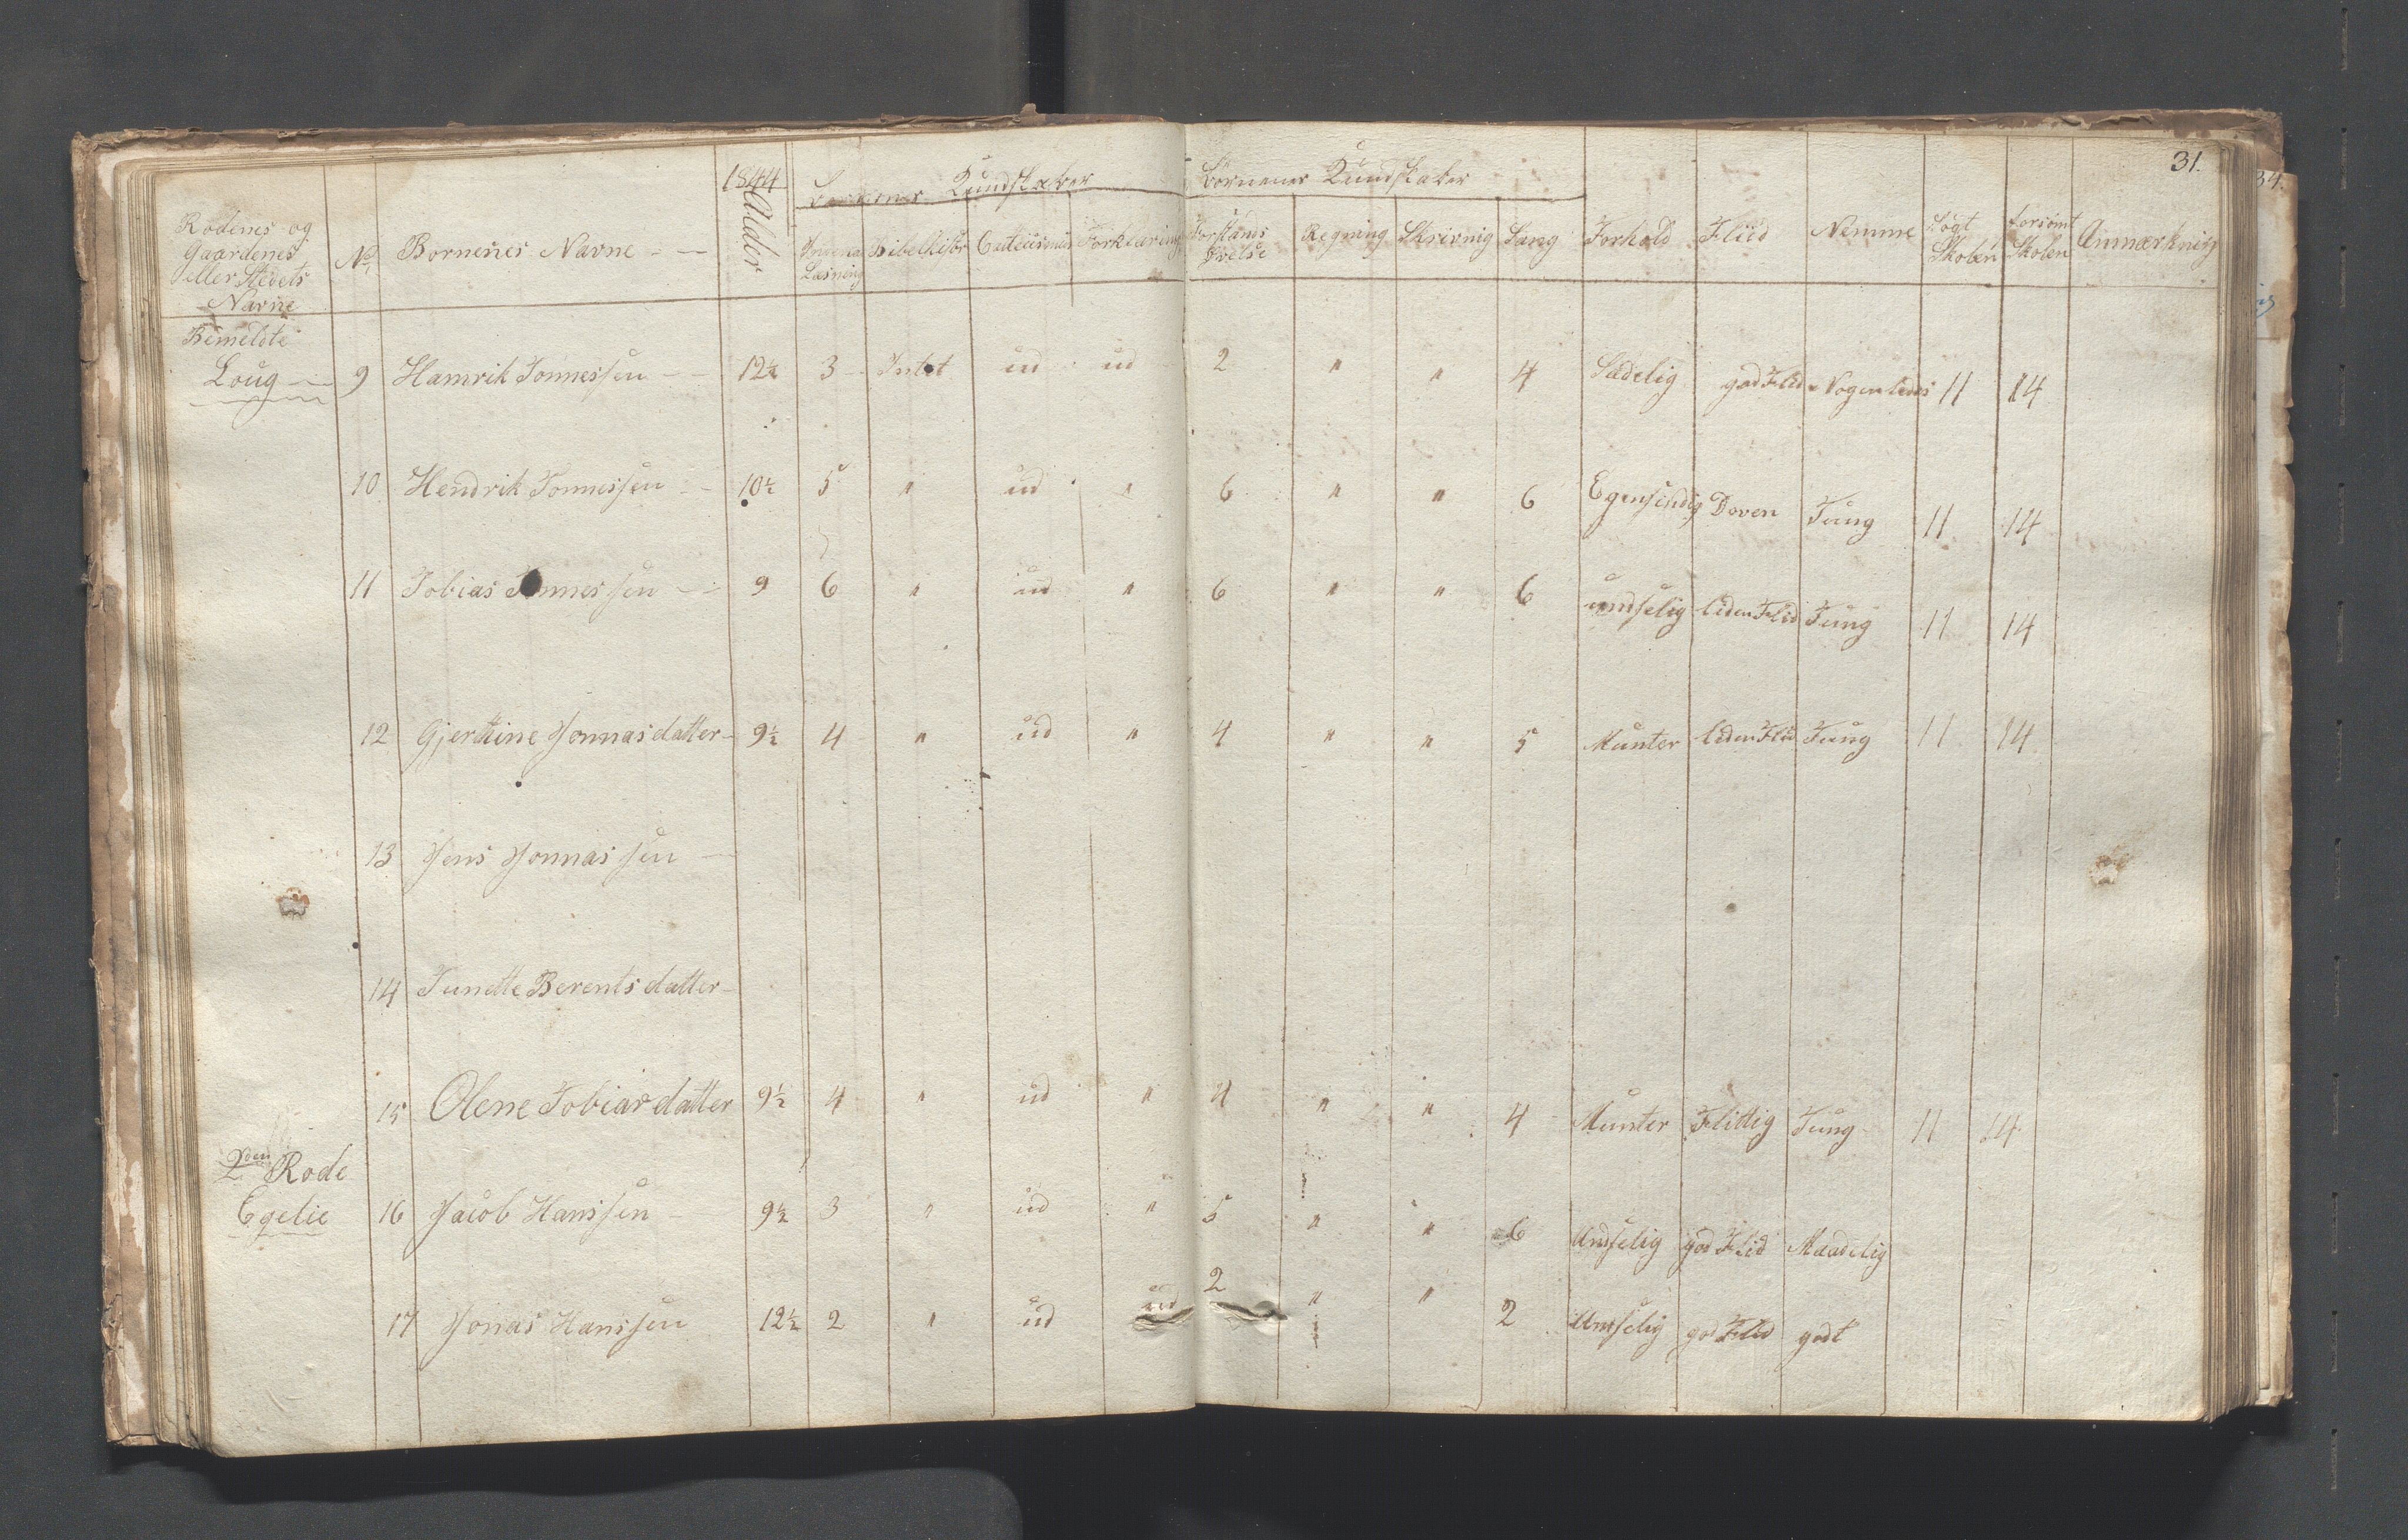 31.
1844
Børnenes Kundskaber
Børnenes Kundskaber
Rodenes og Gaardenes eller Stedets Navne
No
Børnenes Navne
Alder
Læsning
Bibelhistr
Catecismus
Forklaring
Forstands Øvelse
Regning
Skrivnig
Sang
Forhold
Fliid
Nemme
Søgt Skolen
Forsømt Skolen
Anmærknig
Bemeldte
Loug 9 Hamrik Tonnessen 12½ 3 Intet ud ud 2 " " 4 Sædelig god Flid Nogenledes 11 14
10 Hendrik Tonnessen 10½ 5 " ud " 6 " " 6 Egensindig Doven Tung 11 14
11 Tobias Tonnessen 9 6 " ud " 6 " " 6 undselig liden Flid Tung 11 14
12 Gjerttine Jonnasdatter 9½ 4 " ud " 4 " " 5 Munter liden Flid Tung 11 14
13 Jens Jonnassen
14 Tunette Berentsdatter
15 Olene Tobiasdatter 9½ 4 " ud " 4 " " 4 Munter Flittig Tung 11 14
2den Rode
Egelie 16 Jacob Hanssen 9½ 3 " ud " 5 " " 6 Undselig god Flid Maadelig
17 Jonas Hanssen 12½ 2 " ud ud 2 " " 2 Undselig god Flid godt